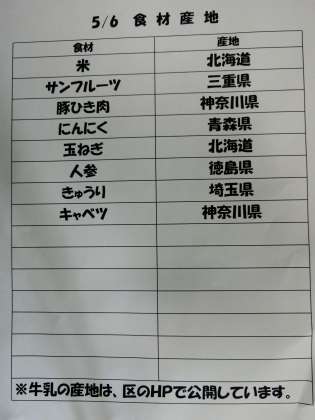 5/6 食材産地
食材 産地
米 北海道
サンフルーツ 三重県
豚ひき肉 神奈川県
にんにく 青森県
玉ねぎ 北海道
人参 徳島県
きゅうり 埼玉県
キャベツ 神奈川県
※牛乳の産地は、区のHPで公開しています。